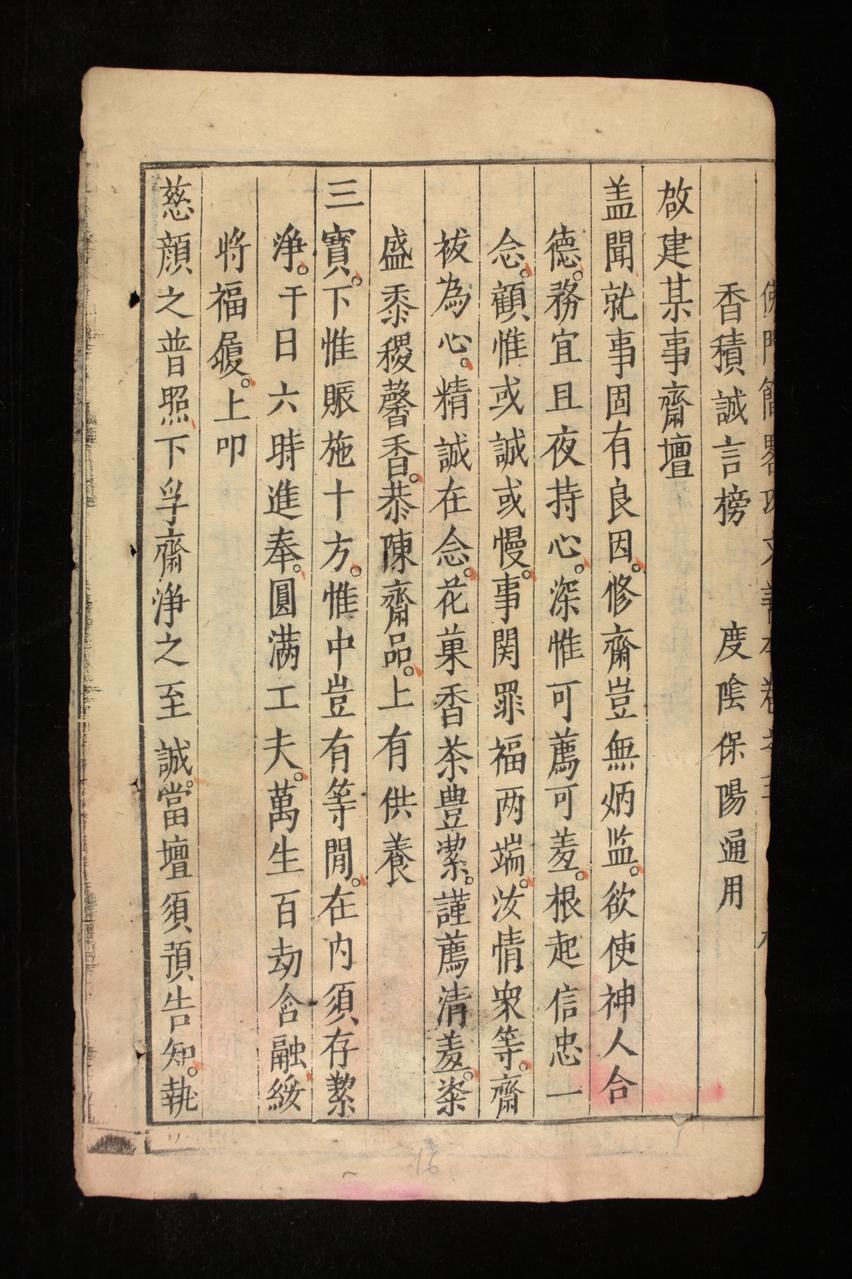 香積誠言榜 度陰保陽通用
啟建某事齋壇
盖聞就事固有良因。修齋豈無炳监。欲使神人合
德。務宜且夜持心。深惟可薦可羞。根起信忠一
念。顧惟或誠或慢。事関罪福两端。汝情衆等。齋
祓為心。精誠在念。花菓香茶豊潔。謹薦清羞。粢
盛黍稷馨香。恭陳齋品。上有供養
三寳。下惟賑施十方。惟中豈有等閒。在内須存絜
净。干日六時進奉。圓满工夫。萬生百劫含融。綏
将福履。上叩
慈顔之普照。下孚齋净之至誠。當壇須預告知。執